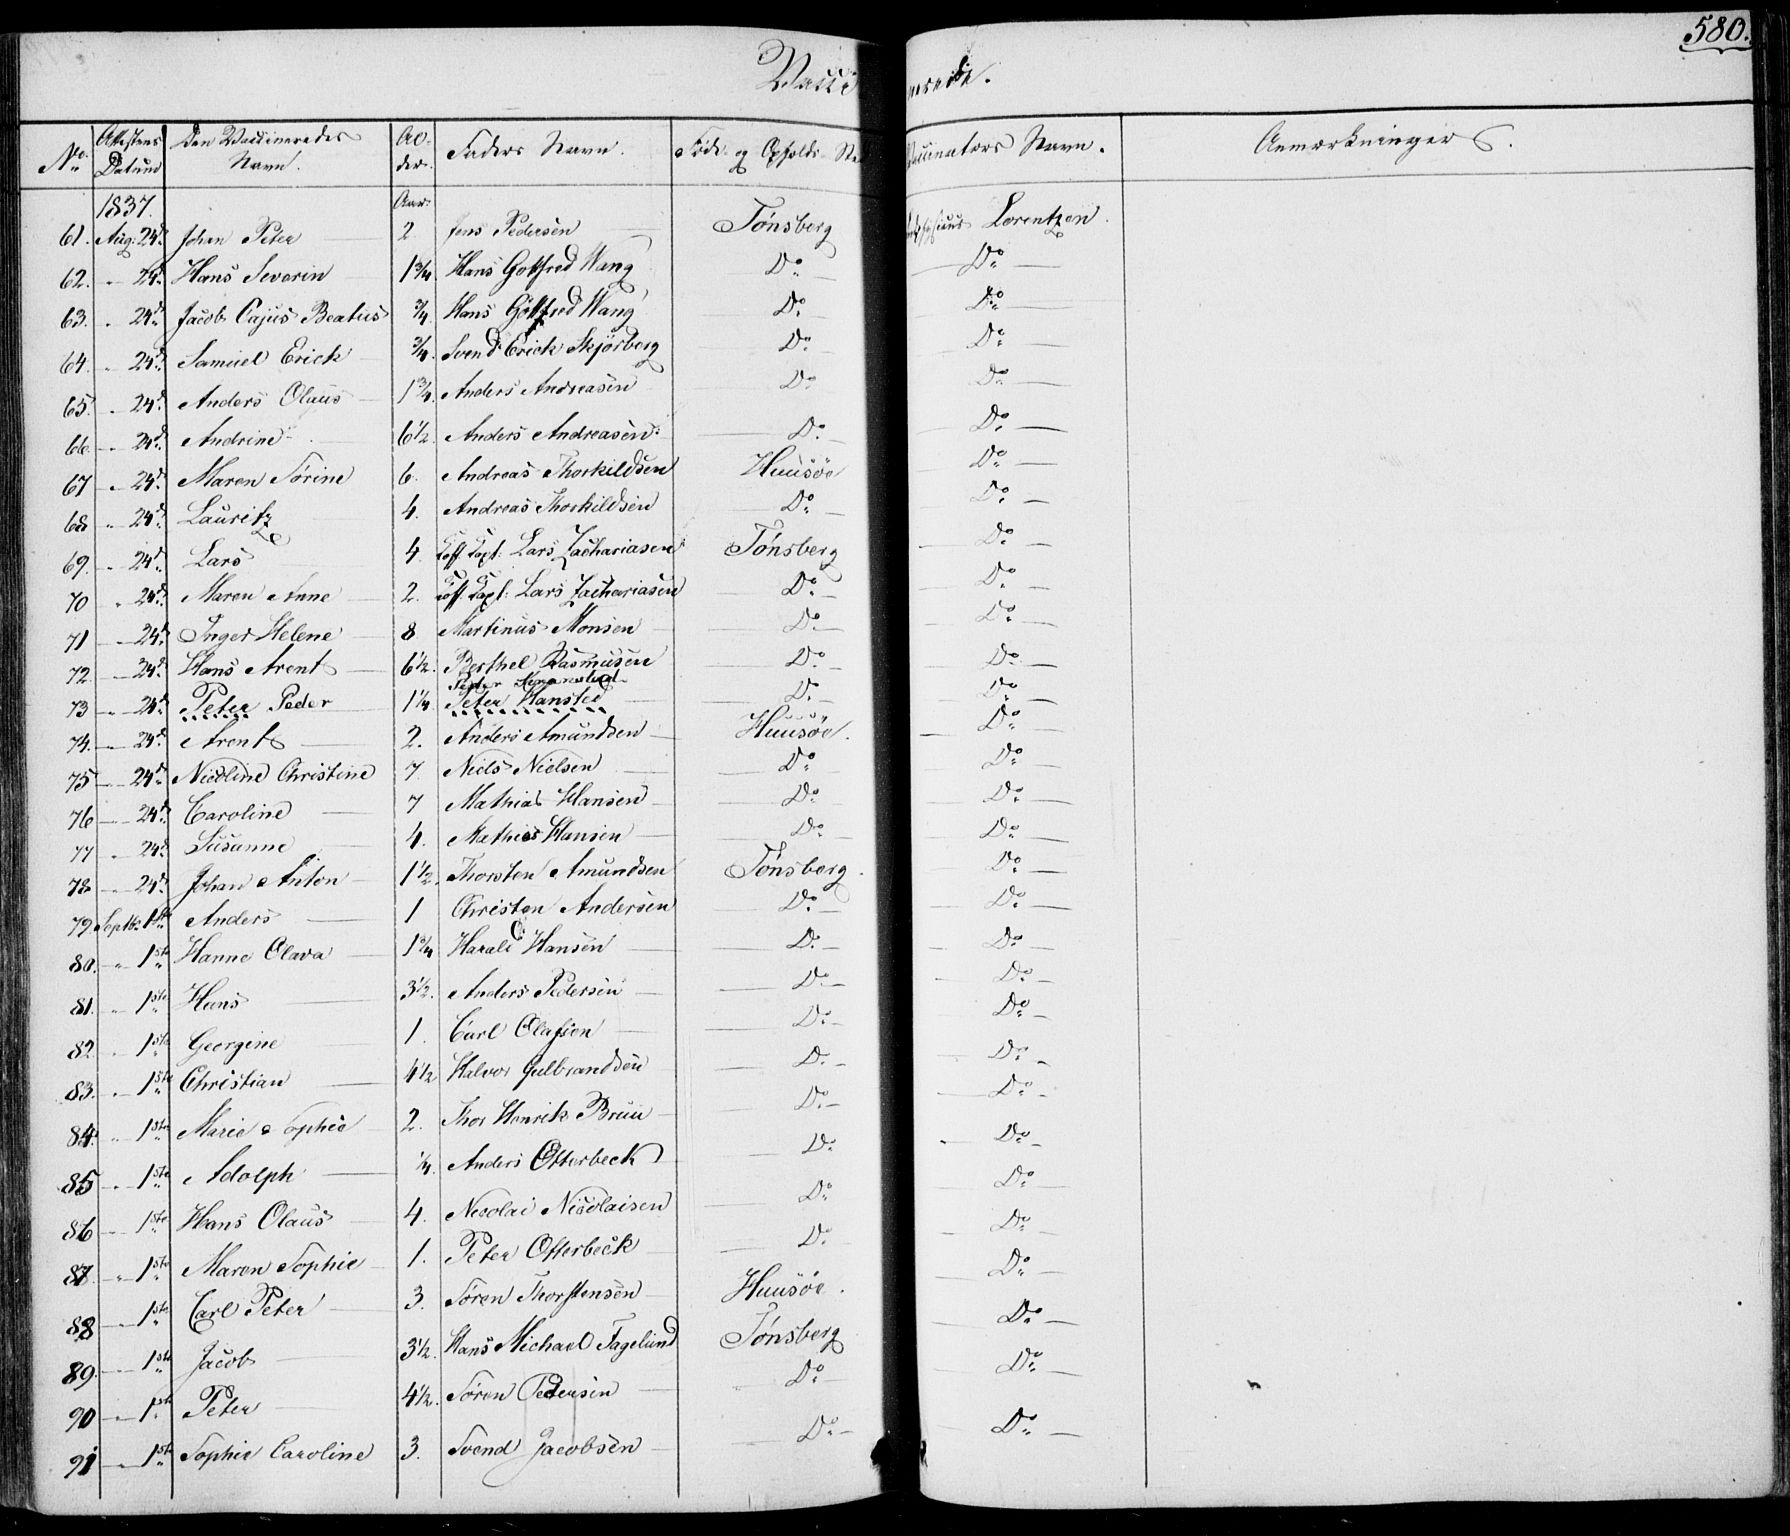 580.
Vaccinerede.
No. Attestens Datum Den Vaccineredes Navn. Alder. Faders Navn. Føde- og Opholds-Sted Vaccinators Navn. Anmærkninger.
1837. Aar.
61. Aug. 24d. Johan Peter 2 Jens Pedersen Tønsberg Lorentzen.
62. " 24d. Hans Severin 1 3/4 Hans Gottfred Wang Do. Do.
63. " 24d. Jacob Cajus Beatus 3/4 Hans Gottfred Wang Do. Do.
64. " 24d. Samuel Erick 3/4. Svend Erick Skjörberg Do. Do.
65. " 24d. Anders Olaus 1 3/4. Anders Andreasen Do. Do.
66. " 24d. Andrine 6 1/2. Anders Andreasen Do. Do.
67 " 24d. Maren Sörine 6. Andreas Thorkildsen Huusøe Do.
68 " 24d. Lauritz 4. Andreas Thorkildsen Do. Do.
69. " 24d. Lars 4. Lars Zachariasen Tønsberg Do.
70 " 24d. Maren Anne 2. Lars Zachariasen Do. Do.
71 " 24d. Inger Helene 8 Martinus Monsen Do. Do.
72 " 24d. Hans Arent 6 1/2. Berthel Rasmusen Do. Do.
Peder
73 " 24d. Peter Peder 1 1/4 Peter Hansted Do. Do.
74. " 24d. Arent 2. Anders Amundsen Huusøe. Do.
75 " 24d. Nicoline Christine 7 Niels Nielsen Do. Do.
76 " 24d. Caroline 7 Mathias Hansen Do. Do.
77 " 24d. Susanne 4. Mathias Hansen Do. Do.
78 " 24d. Johan Anton 1 1/2. Thorsten Amundsen Tønsberg. Do.
79. Septbr. 1ste Anders 1 Christen Andersen Do. Do.
80. " 1ste Hanne Olava 1 3/4 Harald Hansen Do. Do.
81. " 1ste Hans 3 1/2. Anders Pedersen Do. Do.
82. " 1ste Georgine 1. Carl Olafsen Do. Do.
83. " 1ste Christian 4 1/2 Halvor Gulbrandsen Do. Do.
84. " 1ste Marie Sophie 2. Thor Henrik Bruu Do. Do.
85 " 1ste Adolph 1/4. Anders Otterbeck Do. Do.
86 " 1ste Hans Olaus 4. Nicolai Nicolaisen Do. Do.
87 " 1ste Maren Sophie 1. Peter Otterbeck Do. Do.
88 " 1ste Carl Peter 3. Sören Thorstensen Huusøe. Do.
89. " 1ste Jacob 3 1/2. Hans Michael Fagelund Tønsberg Do.
90 " 1ste Peter 4 1/2. Sören Pedersen Do. Do.
91 " 1ste Sophie Caroline 3. Svend Jacobsen Do. Do.